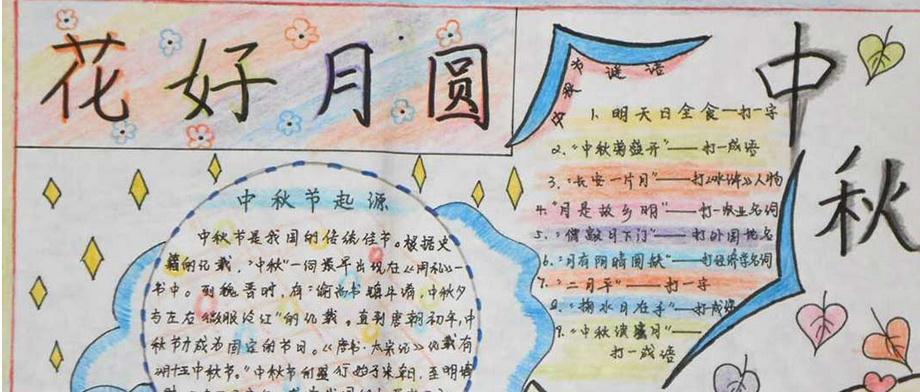 花好月圆
中秋
中秋节谜语
1、明天日全食一打一字
2、"中秋菊盛开"——打一成语
3、"长安一片月"——打《水浒》人物
4、"月是故乡明"——打一 业名词
5、"僧敲月下门"——打外国地名
6、"月有阴晴圆缺"——打经济学名词
7、"二月平"——打一字
8、"掬水月在手"——打成语
9、"中秋 月"——
打一成语
中秋节起源
中秋节是我国的传统佳节。根据史
籍的记载,"中秋"一词最早出现在《周礼》一
书中。到魏晋时,有"谕尚书镇牛渚,中秋夕
与左右微服泛江"的记载。直到唐朝初年,中
秋节才成为固定的节日。《唐书·太宗记》记载有
中秋节。"中秋节的盛行始于宋朝,至明清